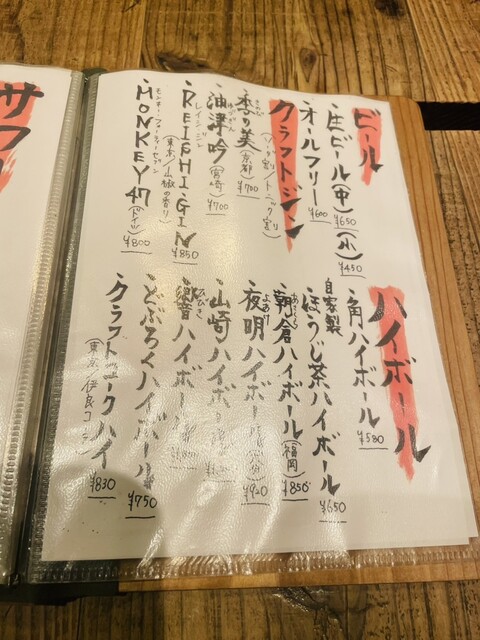 ビール
・生ビール(中)¥650 (小)¥450
・オールフリー ¥600
クラフトジン
(ソーダ割り/トニック割り)
・季の美(京都)¥700
きのび
・油津吟(宮崎)¥700
ゆづぎん
・REIPHI・GIN ¥850
レイシージン
(東京/山椒の香り)
・MONKEY 47(ドイツ)¥800
モンキー・フォーティーセブン
ハイボール
・角ハイボール ¥580
自家製
ほうじ茶ハイボール ¥650
・朝倉ハイボール(福岡)¥850
あさくら
・夜明ハイボール
よあけ
¥920
・山崎ハイボール
・響ハイボール
ひびき
・どぶろくハイボール ¥750
・クラフトコークハイ ¥830
(東京/伊良コーラ)
サワ